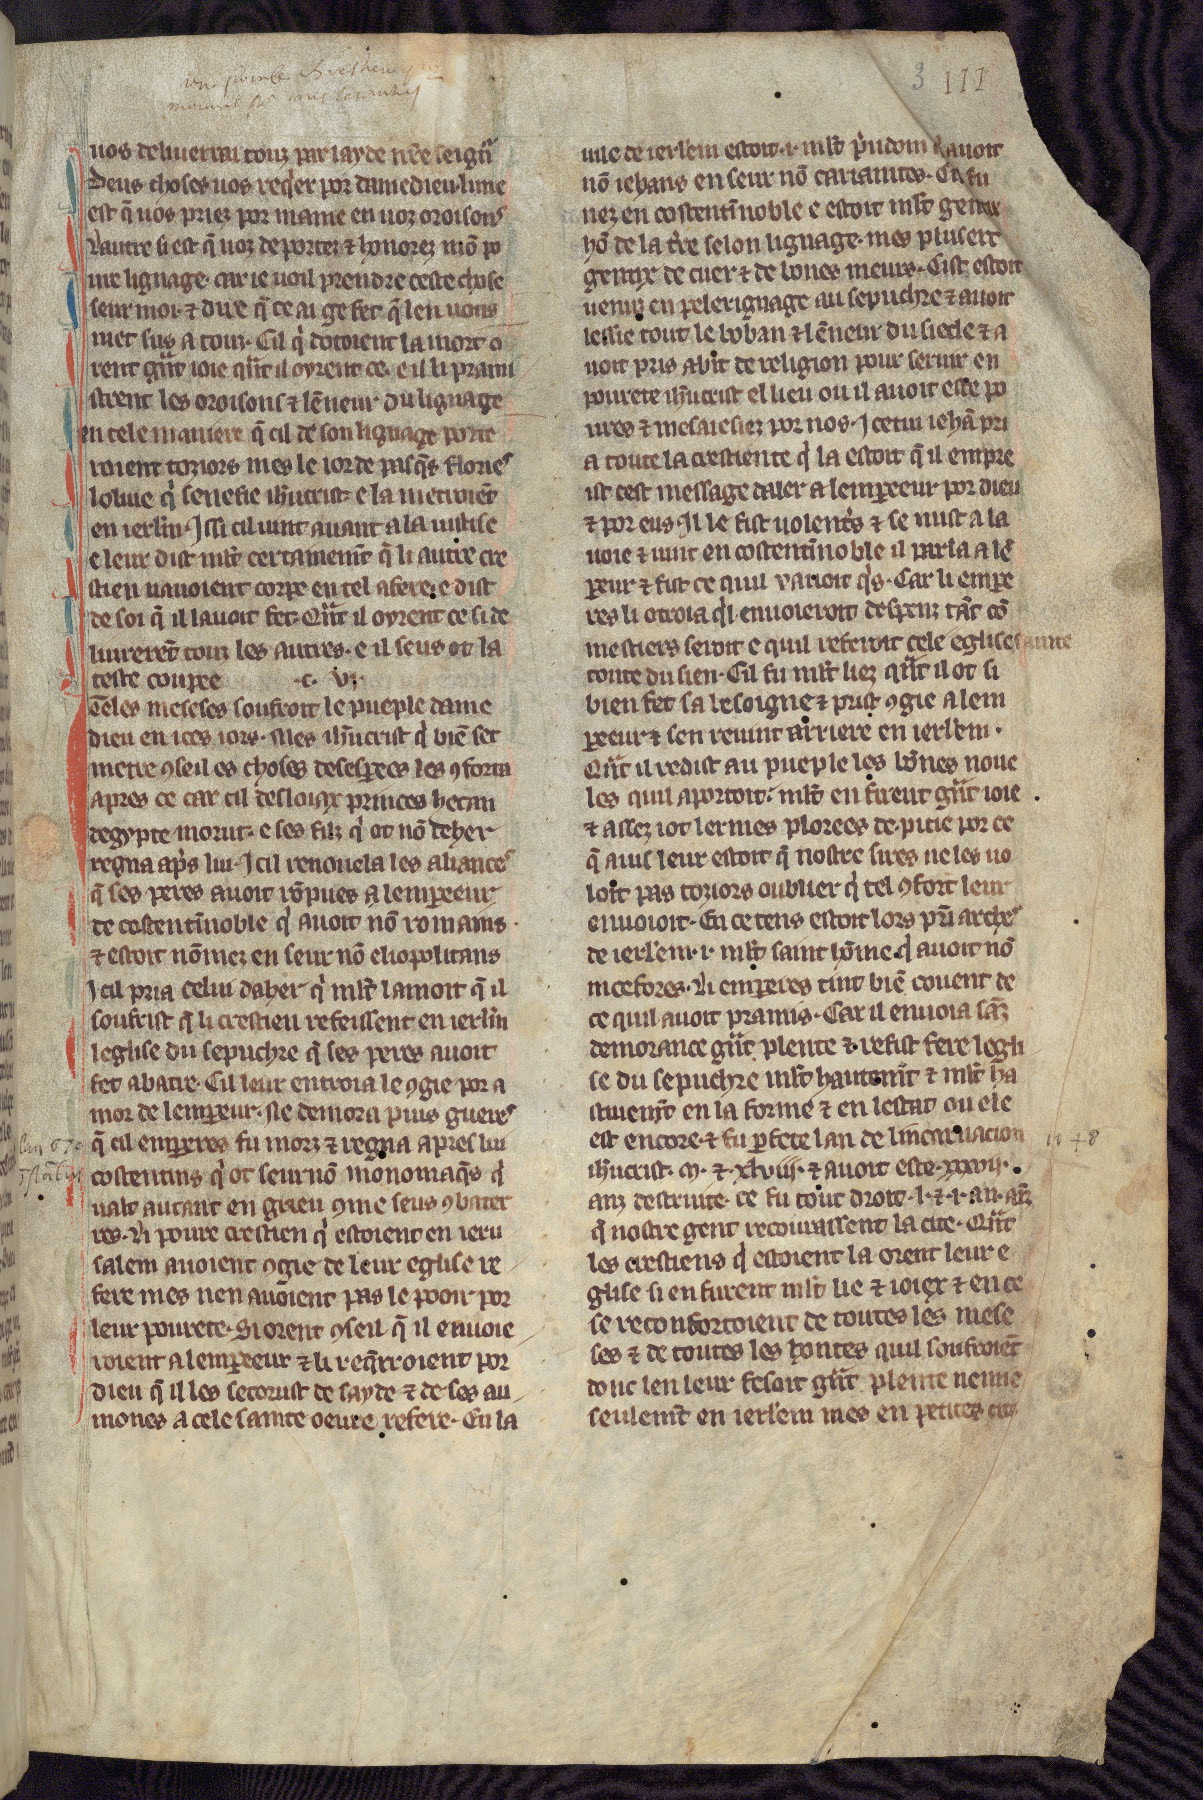 3 III
uos deliuerrai touz par layde nr̃e seigñ
Deus choses uos req̇er por damedieu · lune
est q̃ uos priez por mame en uoz oroisons
Lautre si est q̃ uoz deportez ⁊ honorez mõ po
ure lignage · car ie uoil prendre ceste chose
seur moi · ⁊ dire q̃ ce ai ge fet q̃ len uous
met sus a tour · Cil q̇ dotoient la mort o
rent gñt ioie qñt il oyrent ce · e il li prami
strent les oroisons ⁊ lẽneur du lignage
en tele maniere q̃ cil de son lignage porte
roient toziors mes le ior de pasq̃s flories
loliue q̇ senefie ih̃ucrist · e la metroiẽt
en ierlm̃ · Issi cil uint auant a la iustise
e leur dist ml̃t certainem̃t q̃ li autre cre
stien nauoient corpe en cel afere · e dist
de soi q̃ il lauoit fet · Qñt il oyrent ce si de
liurerẽt touz les autres · e il seus ot la
teste coupee · c · v ·
Eeles meseses soufroit le pueple dame
dieu en ices iors · Mes ih̃ucrist q̇ biẽ set
metre ꝯseil es choses desesperees les ꝯforta
apres ce car cil desloiax princes hecan
degypte morut · e ses filz q̇ ot nõ deher
regna ap̃s lui · Icil renouela les aliances
q̃ ses peres auoit rõpues a lempeeur
de costentĩnoble q̇ auoit nõ romains ·
⁊ estoit nõmez en seur nõ eliopolitans
Icil pria celui daher q̇ ml̃t lamoit q̃ il
soufrist q̃ li crestien refeissent en ierlm̃
leglise du sepuchre q̃ ses peres auoit
fet abatre · Cil leur entroia le ꝯgie por a
mor de lempeur · Ne demora puis gueres
q̃ cil emperes fu morz ⁊ regna apres lui
costentins q̇ ot seurnõ monomaq̃s q̇
ualt autant en grieu ꝯme seus ꝯbater
res · Li poure crestien q̇ estoient en ieru
salem auoient ꝯgie de leur eglise re
fere mes nen auoient pas le pooir por
leur pourete · Si orent ꝯseil q̃ il enuoie
roient a lempeeur ⁊ li req̃rroient por
dieu q̃ il les secorust de sayde ⁊ de ses au
mones a cele sainte oeure refere · En la
uile de ierlem estoit · i · ml̃t p̃udom q̇ auoit
nõ iehans en seur nõ carianites · Cil fu
nez en costentĩnoble e estoit ml̃t gentix
hõ de la t̃re selon lignage · mes plus ert
gentix de cuer ⁊ de bones meurs · Cist estoit
uenuz en pelerignage au sepuchre ⁊ auoit
lessie tout le boban ⁊ lẽneur du siecle ⁊ a
uoit pris abit de religion pour seruir en
pourete ih̃ucrist el lieu ou il auoit este po
ures ⁊ mesaiesiez por nos · Icetui iehã pri
a toute la crestiente q̇ la estoit q̃ il empre
ist cest message daler a lempeeur por dieu
⁊ por eus · Il le fist uolent̃s ⁊ se mist a la
uoie ⁊ uint en costentĩnoble il parla a lẽ
peur ⁊ fist ce quil
res li otroia q̇l enuoieroit despenz tãt cõ
mestiers seroit e quil referoit cele eglise sainte
toute du sien · Cil fu ml̃t liez qñt il ot si
bien fet sa besoigne ⁊ prist ꝯgie a lem
peeur ⁊ sen reuint arriere en ierlem ·
Qñt il redist au pueple les bõnes noue
les quil aportoit · ml̃t en firent gñt ioie
⁊ assez i ot lermes plorees de pitie por ce
q̃ auis leur estoit q̃ nostre sires ne les uo
loit pas toziors oublier q̇ tel ꝯfort leur
enuoioit · En ce tens estoit lors pr̃iarches
de ierlem · i · ml̃t saint hõme q̇ auoit nõ
nicefores · Li emperes tint biẽ couent de
ce quil auoit pramis · Car il enuoia sãz
demorance gñt plente ⁊ refist fere legli
se du sepuchre ml̃t hautem̃t ⁊ ml̃t ha
stiuem̃t en la forme ⁊ en lestat ou ele
est encore · ⁊ fu pfete lan de lincarnacion
ih̃ucrist · m · ⁊ · xlviii · ⁊ auoit este · xxxvii ·
anz destruite · ce fu tout droit · l · ⁊ · i · an · aĩz
q̃ nostre gent recouurassent la cite · Qñt
les crestiens q̇ estoient la orent leur e
glise si en furent ml̃t lie ⁊ ioiex ⁊ en ce
se reconfortoient de toutes les mese
ses ⁊ de toutes les hontes quil soufroiẽt
donc len leur fesoit gñt plente nemie
seulem̃t en ierlem mes en petites citez